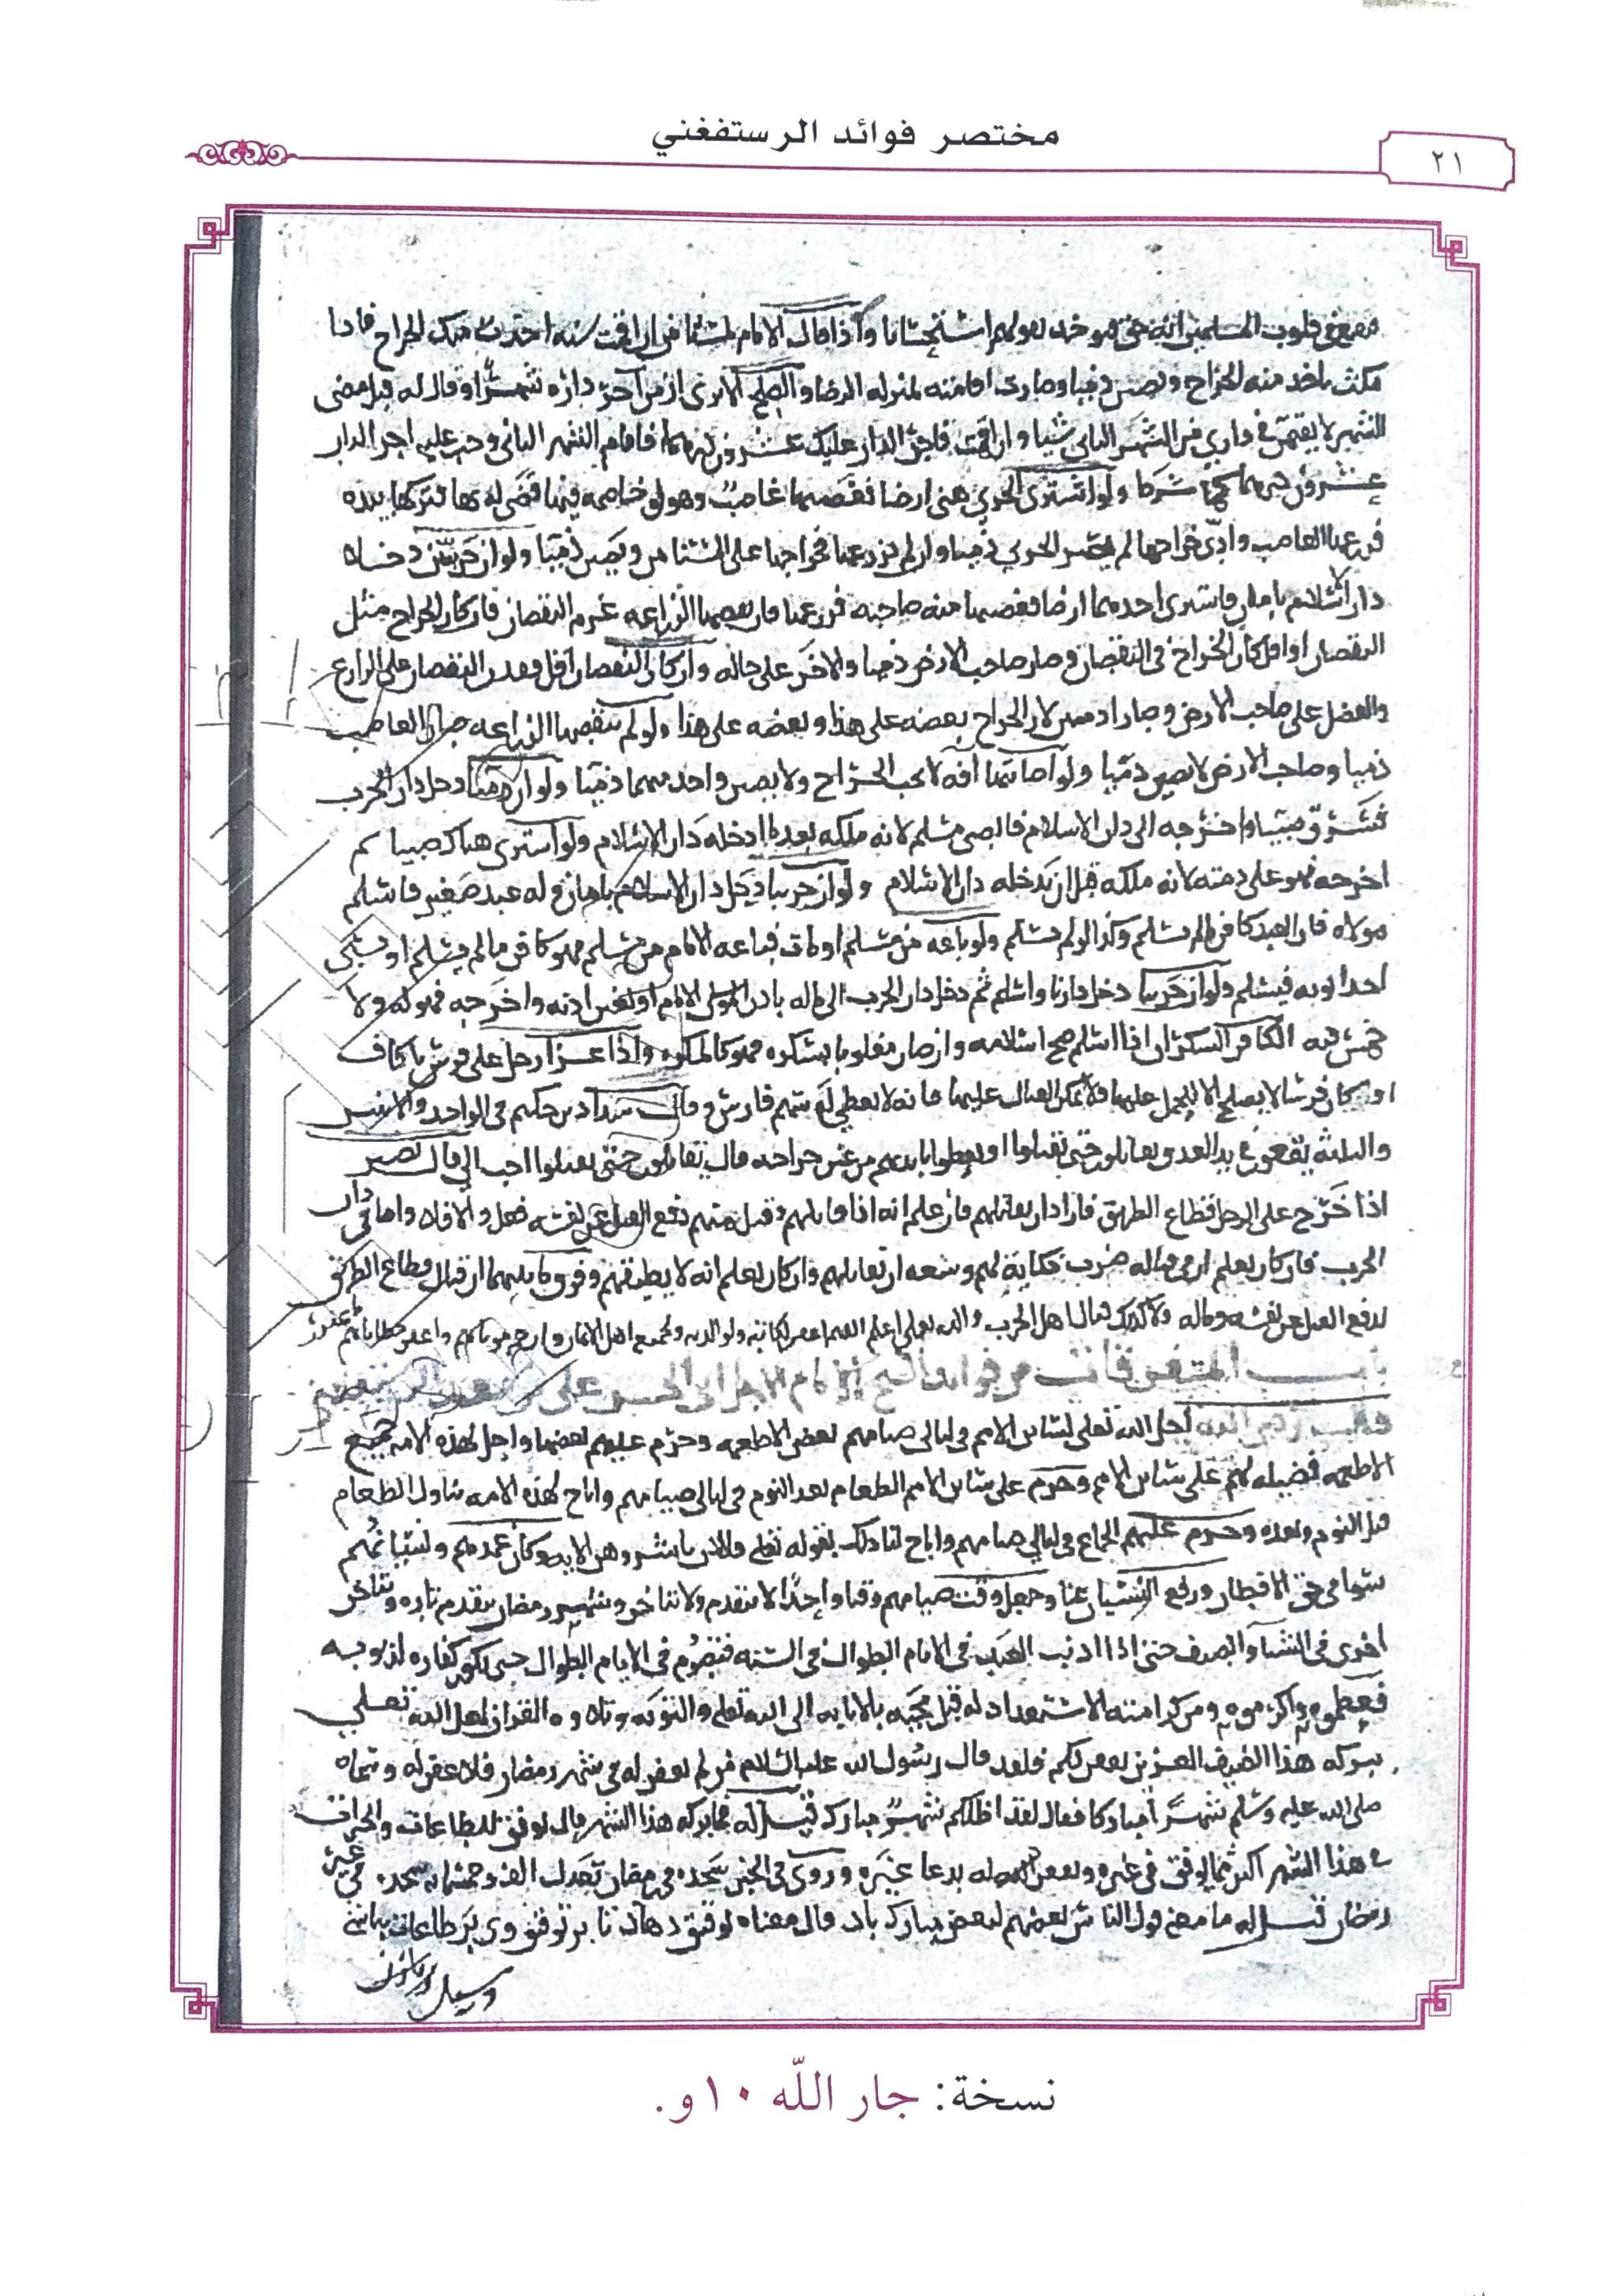 مختصر فوائد الرستفغني
٢١
في قلوب المسلمين انه حق فيوخذ بقولهم استحسانا واذا قال الامام لمستامن ان اقمت سنه اخذت منك الخراج فاذا
مكث ياخذ منه الخراج ويصير ذميا وصارت اقامته بمنزله الرضا والصلح الا ترى ان من آجر داره شهرا وقال له قبل مضي
الشهر لا تقم في داري من الشهر الثاني شيا وان اقمت فاجر الدار عليك عشرون درهما فاقام الشهر الثاني وجب عليه اجر الدار
عشرون درهما كما شرط ولو اشترى الحربي ارضا فغصبها غاصب وهو لو خاصمه فيها قضي له بها فتركها بيده
فزرعها الغاصب وادى خراجها لم يصر الحربي ذميا وان لم يزرعها فخراجها على المستامن ويصير ذميا ولو ان حربيين دخلا
دار الاسلام بامان فاشترى احدهما ارضا فغصبها منه صاحبه فزرعها فان نقصها الزراعه غرم النقصان فان كان الخراج مثل
النقصان او اقل كان الخراج في النقصان وصار صاحب الارض ذميا والاخر على حاله وان كان النقصان اقل فقدر النقصان على الزارع
والفضل على صاحب الارض وصارا ذميين لان الخراج بعضه على هذا وبعضه على هذا ولو لم ينقصها الزراعه صار الغاصب
ذميا وصاحب الارض لا يصير ذميا ولو اصابتها افه لا يجب الخراج ولا يصير واحد منهما ذميا ولو ان ذميا دخل دار الحرب
فسرق صبيا واخرجه الى دار الاسلام فالصبي مسلم لانه ملكه بعد ما ادخله دار الاسلام ولو اشترى هناك صبيا ثم
اخرجه فهو على دينه لانه ملكه قبل ان يدخله دار الاسلام ولو ان حربيا دخل دار الاسلام بامان وله عبد صغير فاسلم
مولاه فان العبد كافر ما لم يسلم وكذا لو لم يسلم ولو باعه من مسلم او مات فباعه الامام من مسلم فهو كافر ما لم يسلم او يسبى
احد ابويه فيسلم ولو ان حربيا دخل دارنا واسلم ثم دخل دار الحرب الى ماله باذن الامام او بغير اذنه واخرجه فهو له ولا
خمس فيه الكافر السكران اذا اسلم صح اسلامه وان صار مغلوبا بسكره فهو كالمكره واذا غزا رجل على فرس باكاف
او كان فرسا لا يصلح الا للحمل عليها فلا يمكن القتال عليها فانه لا يعطى له سهم فارس وقال شداد بن حكيم في الواحد والاثنين
والثلثة يقعون في يد العدو يقاتلون حتى يقتلوا او يعطوا بايديهم من غير جراحه قال يقاتلون حتى يقتلوا احب الي قال نصير
اذا خرج على الرجل قطاع الطريق فاراد ان يقاتلهم فان علم انه اذا قاتلهم وقتل منهم دفع القتل عن نفسه فعل والا فلا واما في دار
الحرب فان كان يعلم ان في قتاله ضرب نكاية لهم وسعه ان يقاتلهم وان كان يعلم انه لا يطيقهم وفرق ما بينهما ان قتال قطاع الطريق
لدفع القتل عن نفسه وماله ولا كذلك قتال اهل الحرب والله تعالى اعلم اللهم اغفر لكاتبه ولوالديه ولجميع اهل الايمان
باب المتفرقات من فوائد الشيخ الامام الاجل ابي الحسن علي بن سعيد الرستغفني
قال رحمه الله احل الله تعالى لسائر الامم في ليالي صيامهم بعض الاطعمه وحرم عليهم بعضها واحل لهذه الامه جميع
الاطعمه فضيله لهم على سائر الامم وحرم على سائر الامم الطعام بعد النوم في ليالي صيامهم واباح لهذه الامه تناول الطعام
قبل النوم وبعده وحرم عليهم الجماع في ليالي صيامهم واباح لنا ذلك بقوله تعلى فالان باشروهن الايه وكان عمدهم ونسيانهم
سوا في حق الافطار ورفع النسيان عنا وجعل وقت صيامهم وقتا واحدا لا تتقدم ولا تتاخر وشهر رمضان يتقدم تاره ويتاخر
اخرى في الشتا والصيف حتى اذا اذنب العبد في الايام الطوال في السنه فيصوم في الايام الطوال حتى يكون كفاره لذنوبه
فعظموه واكرموه ومن كرامته الاستعداد له قبل مجيه بالانابه الى الله تعلى والتوبه وتلاوه القران لعل الله تعلى
ببركه هذا الضيف العزيز يغفر لكم فلقد قال رسول الله عليه السلام من لم يغفر له في شهر رمضان فلا غفر له وسماه
صلى الله عليه وسلم شهرا مباركا فقال لقد اظلكم شهر مبارك قيل له ما بركه هذا الشهر قال يوفق للطاعات والخيرات
في هذا الشهر اكثر مما يوفق في غيره ويغفر له بدعا غيره وروي في الخبر سجده في رمضان تعدل الف وخمسمايه سجده في غير
رمضان قيل له ما معنى قول الناس بعضهم لبعض مبارك باد قال معناه توفيق دهاد تا بر توفيق وي بر طاعات
نسخة: جار الله ١٠و.